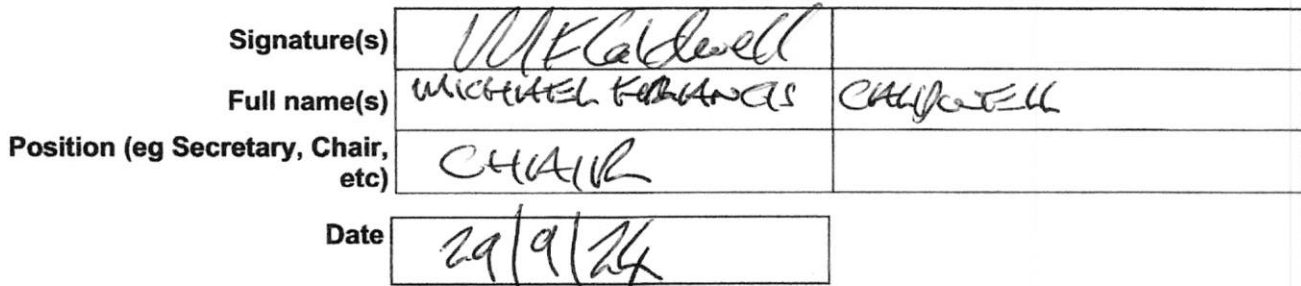 Signature(s) MFCaldwell
Full name(s) MICHAEL FRANCIS CALDWELL
Position (eg Secretary, Chair,
etc) CHAIR
Date 29/9/24